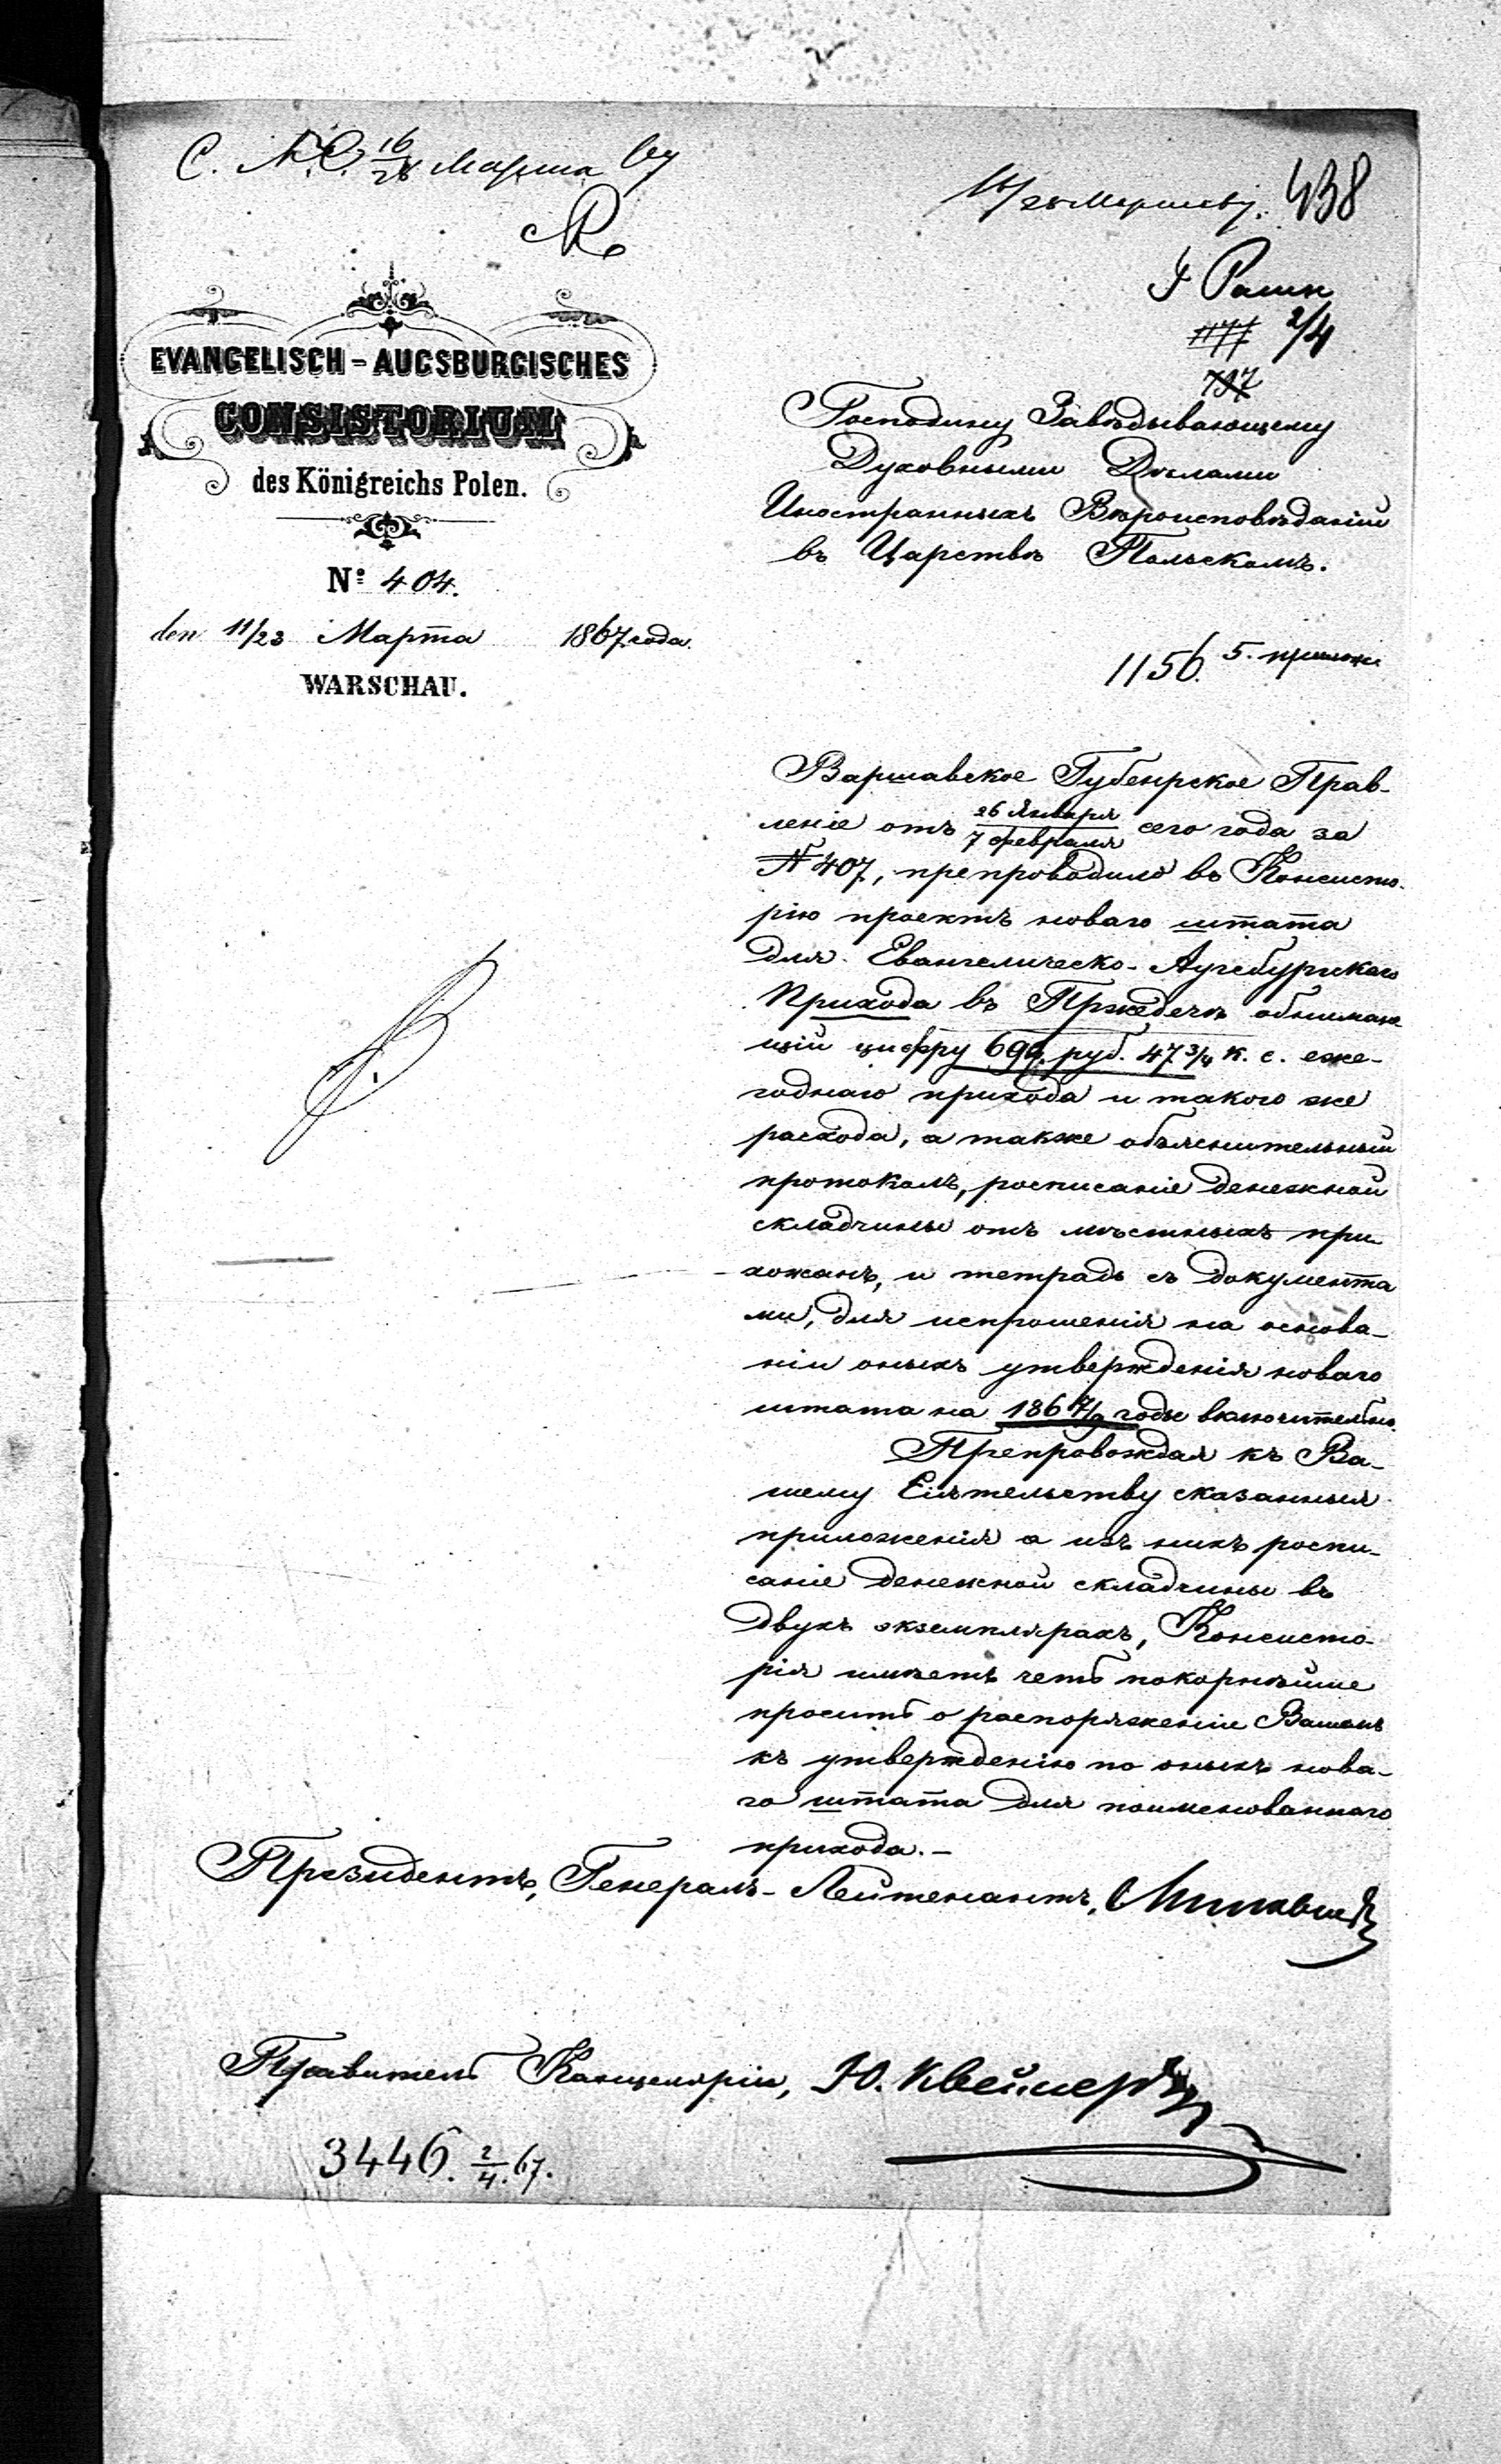 16/28 Марта 67
438
2/4
EVANGELISCH-AUGSBURGISCHES
CONSISTORIUM
des Königreichs Polen.
№ 404.
den 11/23 Марта 1867 года.
WARSCHAU.
Господину Завѣдывающему
Духовными Дѣлами
Иностранныхъ Вѣроисповѣданій
въ Царствѣ Польскомъ.
1156. 5.
Варшавское Губернское Прав-
леніе отъ 26 Января/7 февраля сего года за
№ 407, препроводило въ Консисто-
рію проектъ новаго штата
для Евангелическо-Аугсбургскаго
Прихода въ Пржедечѣ обнимаю
щій цифру 699. руб. 47 3/4 к. с. еже-
годнаго прихода и такого же
расхода, а также объяснительный
протоколъ, росписаніе денежной
складчины отъ мѣстныхъ при-
хожанъ, и тетрадь съ документа
ми, для испрошенія на основа-
ніи оныхъ утвержденія новаго
штата на 1867/9 годы включительно.
Препровождая къ Ва-
шему Сіятельству сказанныя
приложенія а изъ нихъ роспи-
саніе денежной складчины въ
двухъ экземплярахъ, Консисто-
рія имѣетъ честь покорнѣйше
просить о распоряженіи Вашемъ
къ утвержденію по онымъ нова-
го штата для поименованнаго
прихода.-
Президентъ, Генералъ-Лейтенантъ,
Правитель Канцеляріи, Ю.
3446. 2/4. 67.